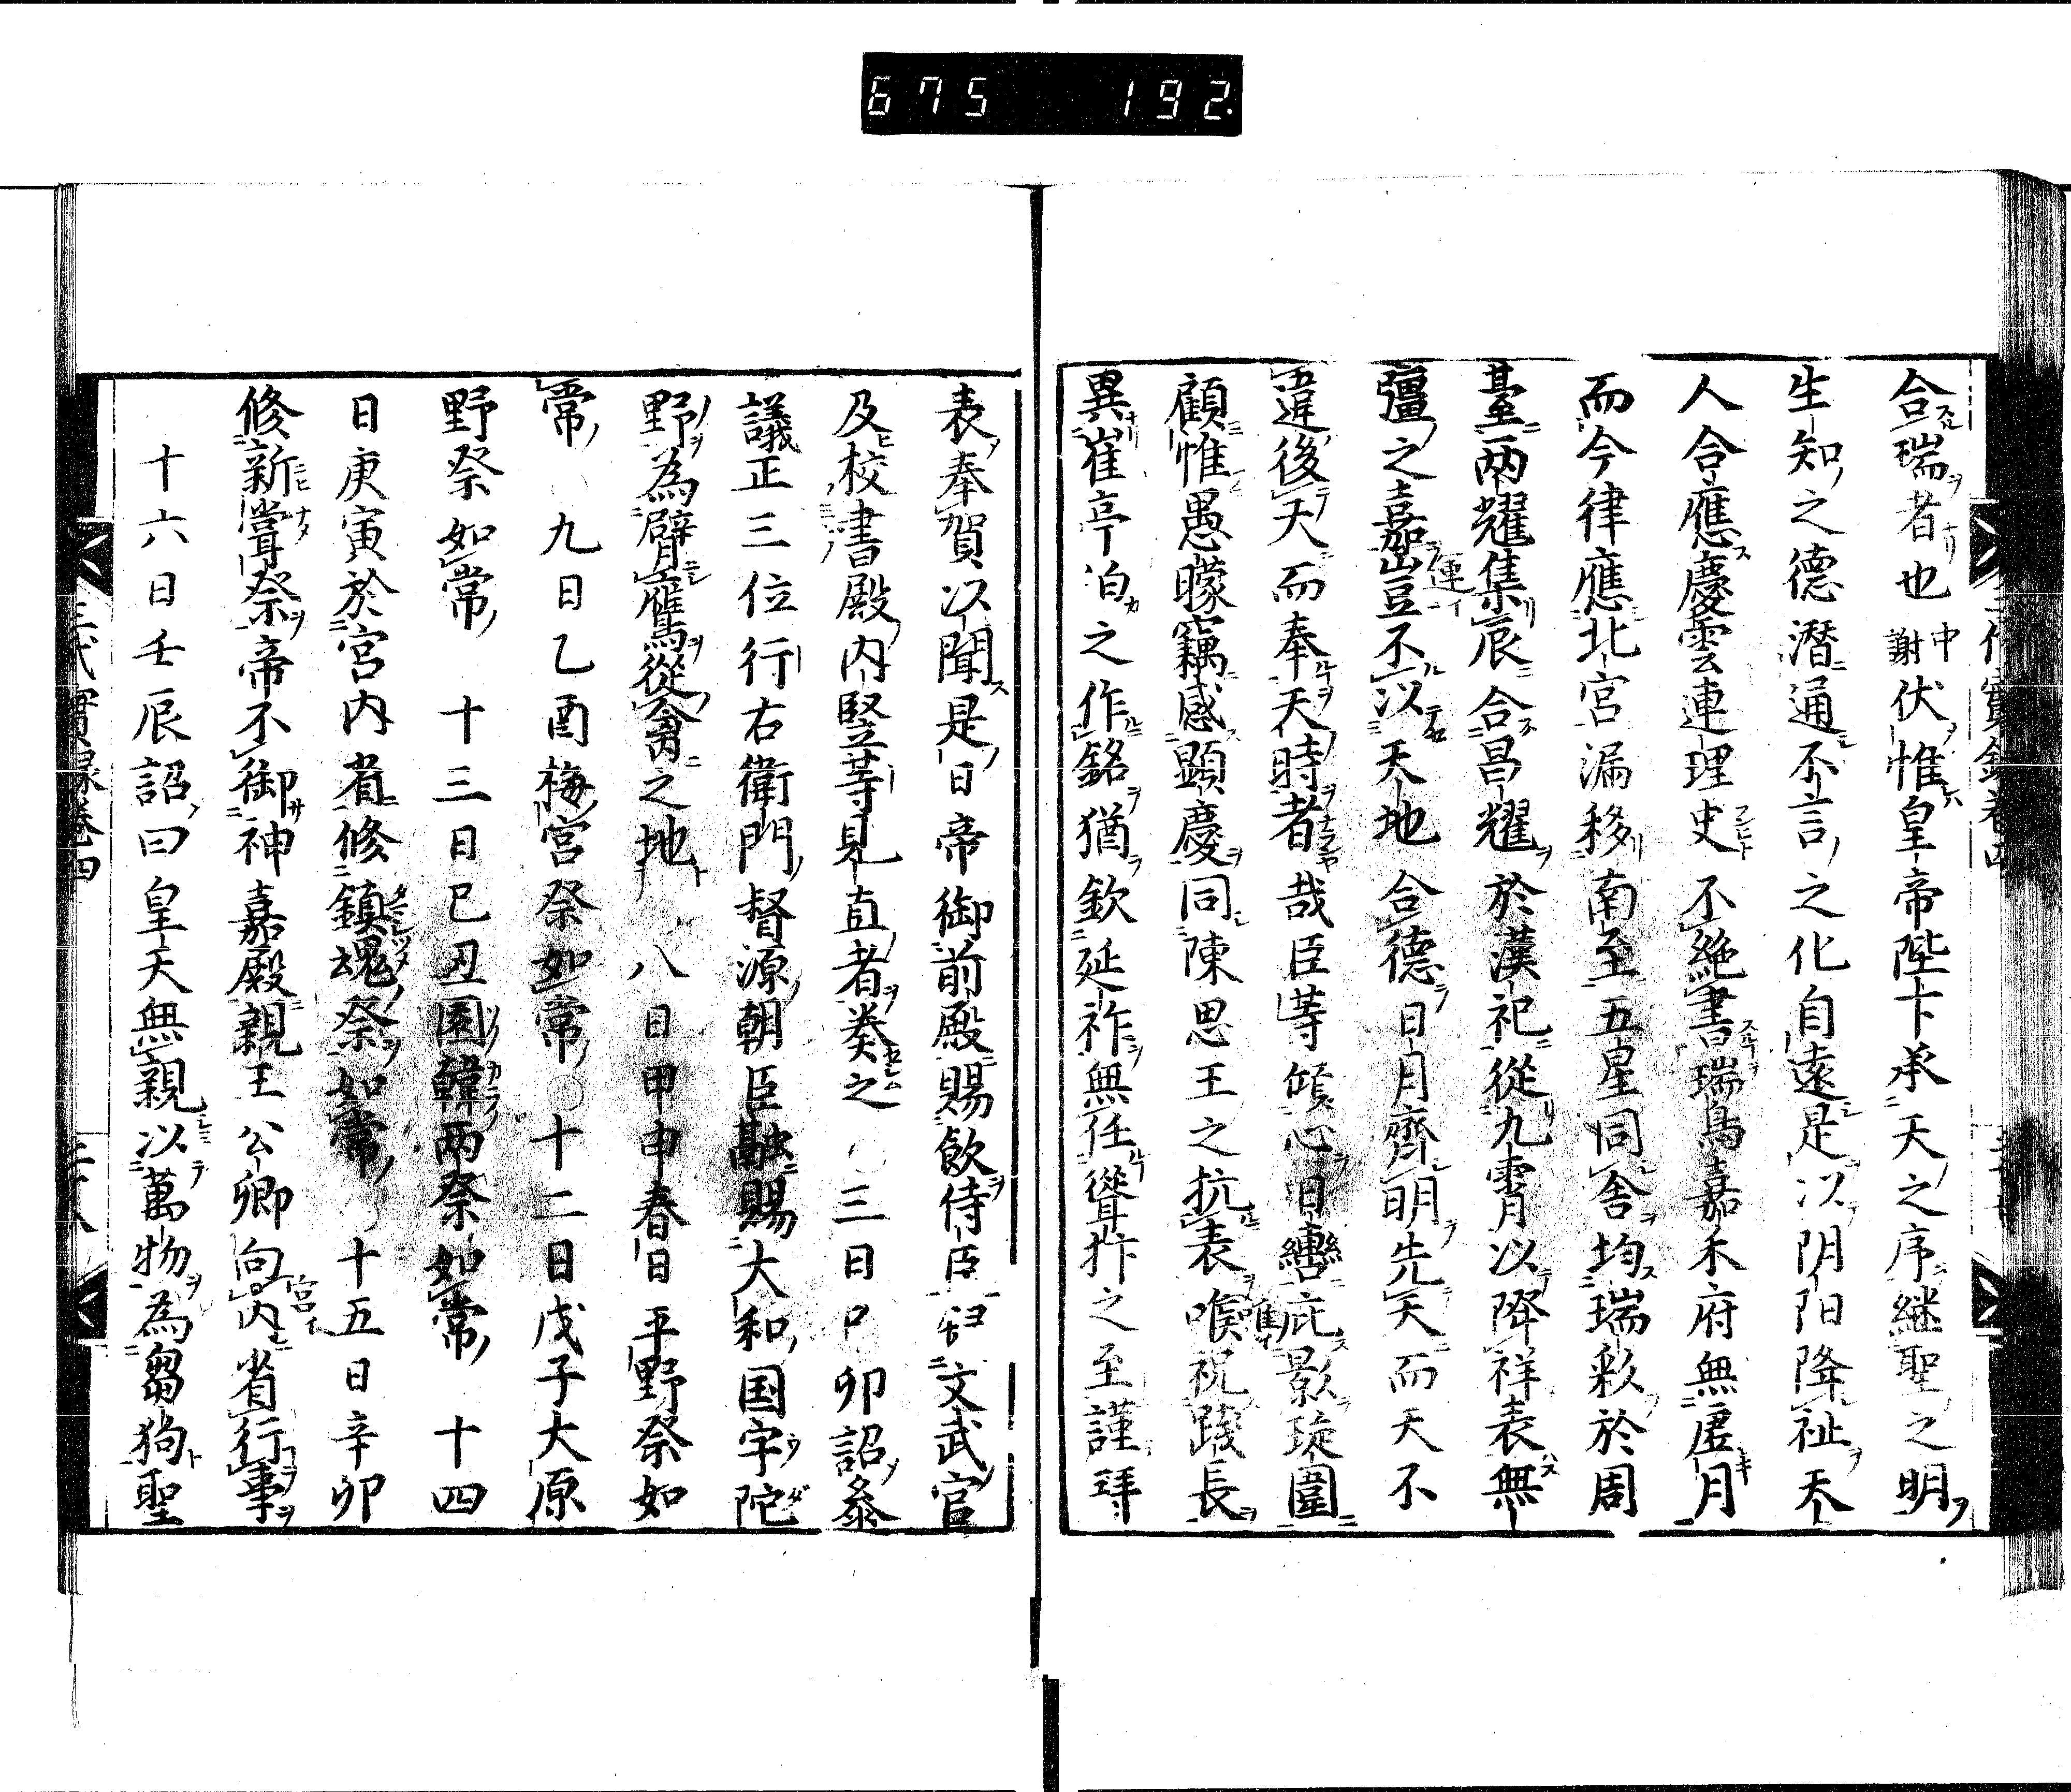 675 192.
合瑞者也中謝伏惟皇帝陛下承天之序継聖之明
生知之德潜通不言之化自遠是以阴阳降祉天
人合應慶雲連理史不絶書瑞鳥嘉禾府無虚月
而今律應北宮漏移南至五星同舎均瑞彩於周
臺兩耀集辰合昌耀於漢祀從九霄以降祥表無
彊之嘉豈不以天地合德日月齊明先天而天不
違後天而奉天時者哉臣等傾心日轡庇影璇圍
顧惟愚曚竊感顕慶同陳思王之抗表喉祝踐長
異崔亭泊之作銘猶欽延祚無任聳抃之至謹拜
表奉賀以聞是日帝御前殿賜飲侍臣文武官
及校書殿内竪等見直者奏之○三日卯詔叅
議正三位行右衛門督源朝臣融賜大和国宇陀
野為臂鷹從禽之地八日甲申春日平野祭如
常○九日乙酉梅宮祭如常○十二日戊子大原
野祭如常十三日己丑園韓兩祭如常十四
日庚寅於宮内省修鎮魂祭如常○十五日辛卯
修新嘗祭帝不御神嘉殿親王公卿向内省行事
十六日壬辰詔曰皇天無親以萬物為芻狗聖
三代實録卷四